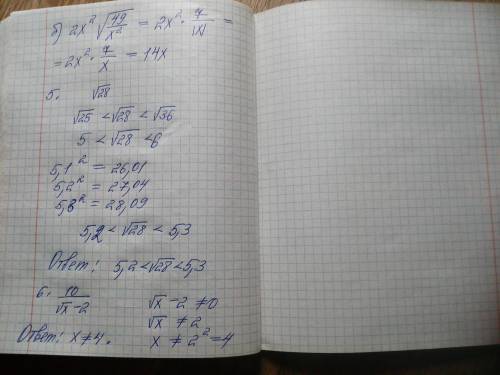 б) 2x² √(49/x²) = 2x² · 7/|x| =
= 2x² · 7/x = 14x
5. √28
√25 < √28 < √36
5 < √28 < 6
5,1² = 26,01
5,2² = 27,04
5,3² = 28,09
5,2 < √28 < 5,3
Ответ: 5,2 < √28 < 5,3
6. 10/(√x − 2)
√x − 2 ≠ 0
√x ≠ 2
x ≠ 2² = 4
Ответ: x ≠ 4.